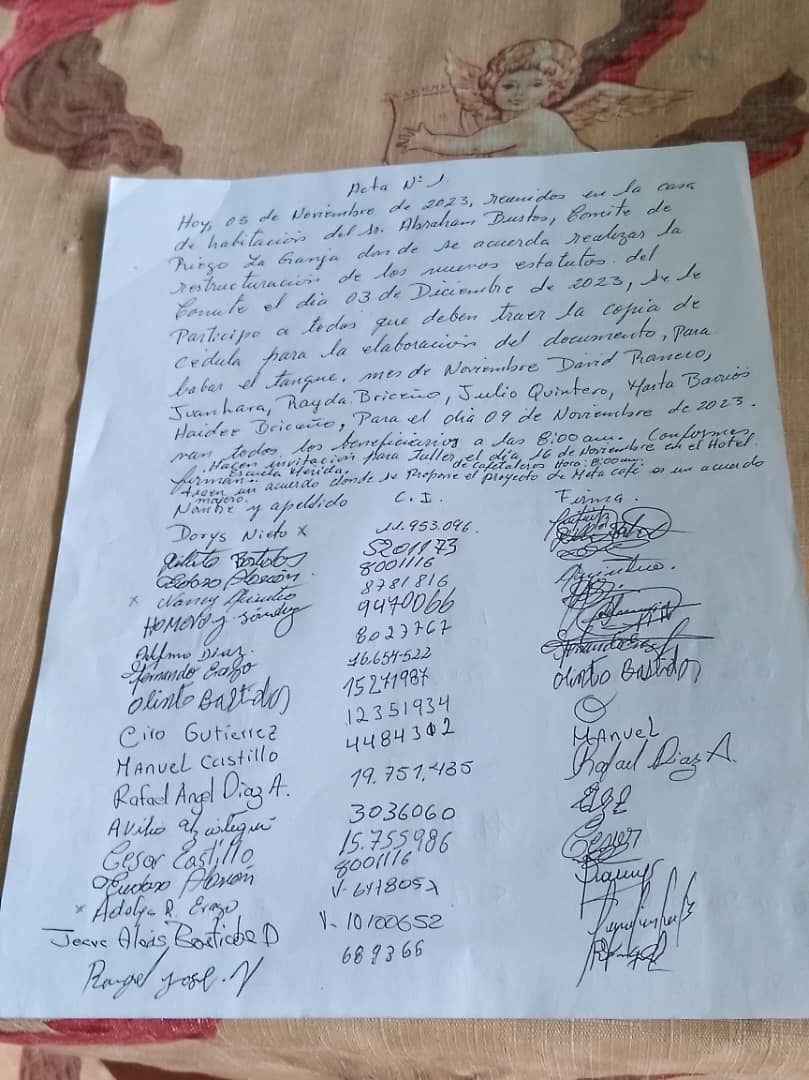 Acta N° 1.
Hoy, 03 de Noviembre de 2023, reunidos en la casa
de habitación del sr. Abraham Bustos, Comite de
Riego La Granja donde se acuerda realizar la
restructuración de los nuevos estatutos del
Comite el dia 03 de Diciembre de 2023, se le
Participo a todos que deben traer la copia de
cédula para la elaboración del documento, Para
labar el tanque. mes de Noviembre David
Rayda Briceño, Julio Quintero, Marta Barrios
Haidee Briceño, Para el dia 09 de Noviembre de 2023.
van todos los beneficiarios a las 8:00 am. Conformes
firman. Hacen invitación para Taller el día, 16 de Noviembre en el Hotel
Escuela Mérida. de cafetaleros Hora: 8:00am
un acuerdo donde se Propone el proyecto de café es un acuerdo
Nombre y apellido C. I. Firma.
Dorys Nieto x 11.953.096.
5201173
8001116
x Nancy 8781816
9470066
Diaz. 8023767
Fernando Erazo 16.654-522
Olinto Bastidas 15271987 Olinto Bastidas
Ciro Gutierrez 12351934
Manuel Castillo 4484302 Manuel
Rafael Angel Diaz A. 19.751.485 Rafael Diaz A.
Avilio 3036060
Cesar Castillo 15.755.986 Cesar
8001116
x Adolfo R. Erazo V-
V-10100652
Rangel Jose. 689366